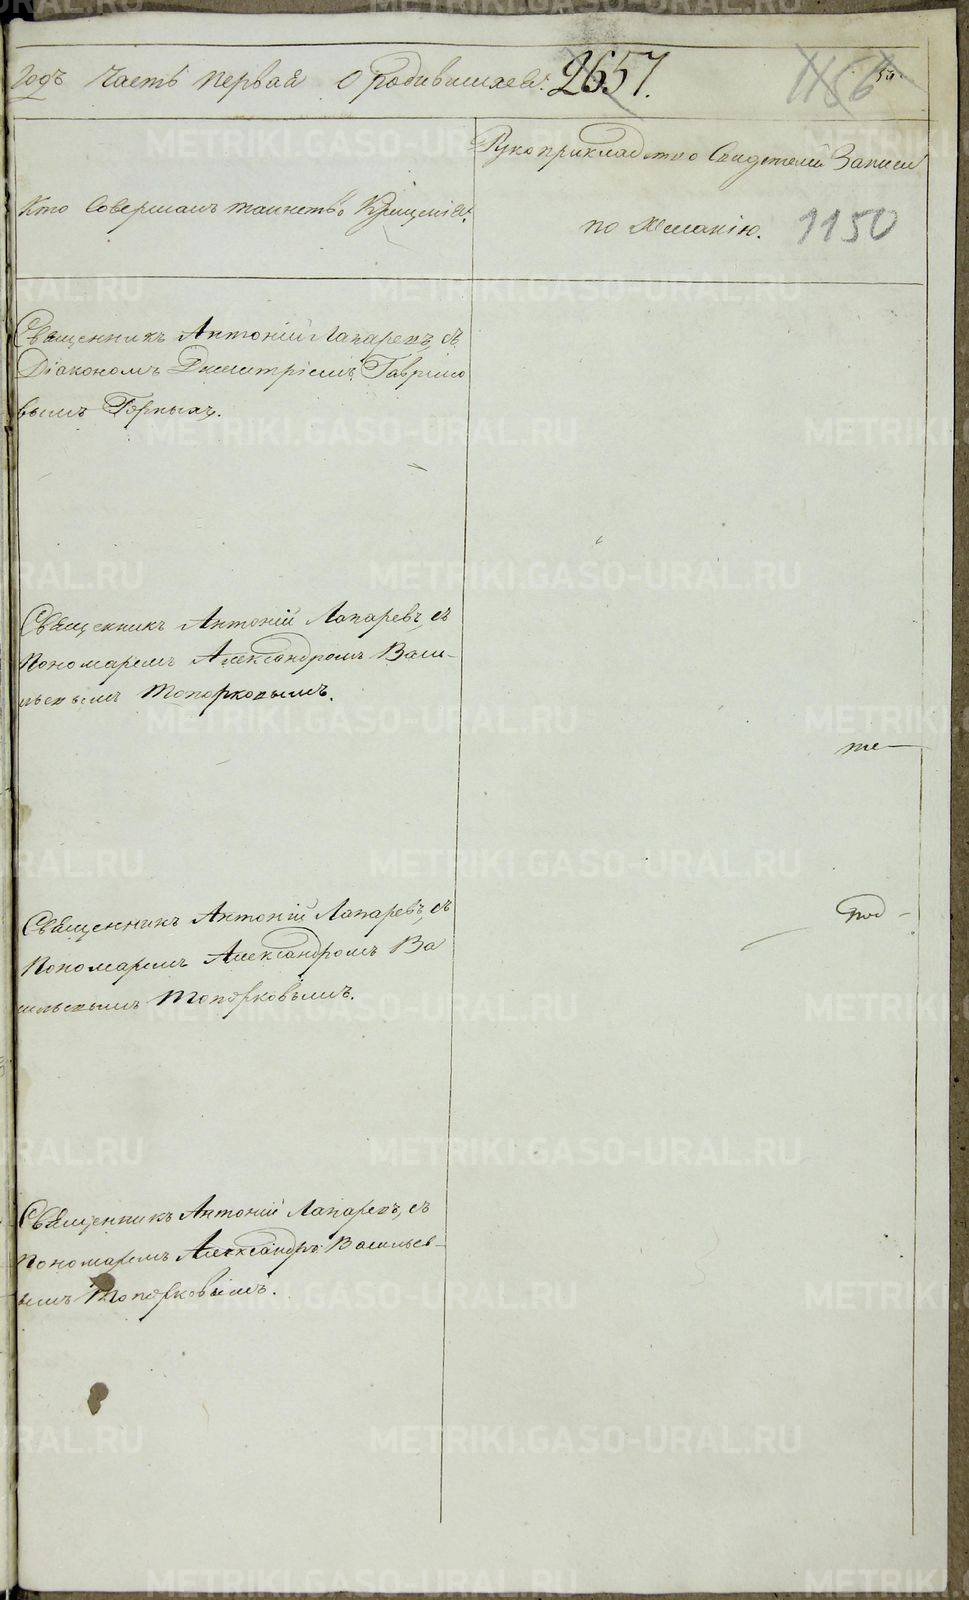 Годъ Часть первая О родившихся. 2657. 1156
Кто совершалъ таинство Крещенія.
Рукоприкладство Свидетелей Записи
по желанію. 1150
Священникъ Антоній Лапаревъ, съ
Діакономъ Димитріемъ Гаврило
вымъ Горныхъ.
Священникъ Антоній Лапаревъ, съ
Пономаремъ Александромъ Васи-
льевымъ Топорковымъ.
те—
Священникъ Антоній Лапаревъ, съ
Пономаремъ Александромъ Ва
сильевымъ Топорковымъ.
под-
Священникъ Антоній Лапаревъ, съ
Пономаремъ Александръ Васильев-
ымъ Топорковымъ.
METRIKI.GASO-URAL.RU